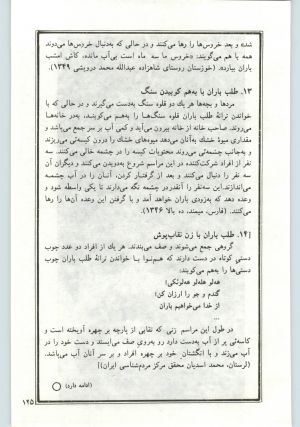 شد» و بعد خروس‌ها را رها می‌کنند و در حالی که به‌دنبال خروس‌ها می‌دوند
همه با هم می‌گویند: «خروس ما سه ماه است بی‌آب مانده، کاش امشب
باران بیارد». (خوزستان روستای شاهزاده عبدالله محمد درویشی ۱۳۴۹).
۱۳. طلب باران با به‌هم کوبیدن سنگ
مردها و بچه‌ها هر یك دو قلوه سنگ به‌دست می‌گیرند و در حالی که با
خواندن ترانهٔ طلب باران قلوه سنگ‌ها را به‌هم می‌کوبند، به‌در خانه‌ها
می‌روند. صاحب خانه از خانه بیرون می‌آید و کمی آب بر سر جمع می‌پاشد و
مقداری میوهٔ خشك به‌آنان می‌دهد میوه‌های خشك را درون کیسه‌ئی می‌ریزند
و به‌جانب چشمه‌ئی می‌روند محتویات کیسه را در چشمه خالی می‌کنند. سه
نفر از افراد شرکت‌کننده در این مراسم شروع به‌دویدن می‌کنند و دیگران آن
سه نفر را دنبال می‌کنند و بعد از گرفتار کردن، آنان را در آب چشمه
می‌اندازند. این سه‌نفر را آنقدر در چشمه نگه می‌دارند تا یکی واسطه شود و
وعده دهند که به‌زودی باران خواهد آمد و با گرفتن این وعده آن‌ها را رها
می‌کنند. (فارس، میمند، ده بالا ۱۳۴۶).
[۱۴. طلب باران با زن نقاب‌پوش
گروهی جمع می‌شوند و صف می‌بندند. هر یك از افراد دو عدد چوب
دستی کوتاه در دست دارند که هم‌نوا با خواندن ترانهٔ طلب باران چوب
دستی‌ها را به‌هم می‌کوبند:
هلونکی هلو هلونکی!
گندم و جو را ارزان کن!
از خدا می‌خواهیم باران
...
در طول این مراسم زنی که نقابی از پارچه بر چهره آویخته است و
کاسه‌ئی پر از آب به‌دست دارد رو به‌روی صف می‌ایستد و دست خود را در
آب می‌زند و با انگشتان خود بر چهره افراد و بر سر آنان آب می‌پاشد.
(لرستان، محمد اسدیان محقق مرکز مردم‌شناسی ایران)]
(ادامه دارد)
۱۲۵